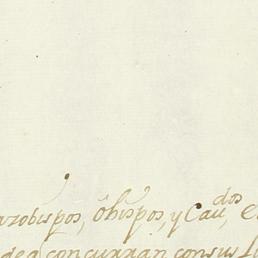 arzobispos, obispos, y Cau.dos, e
dea concurran con sus fu